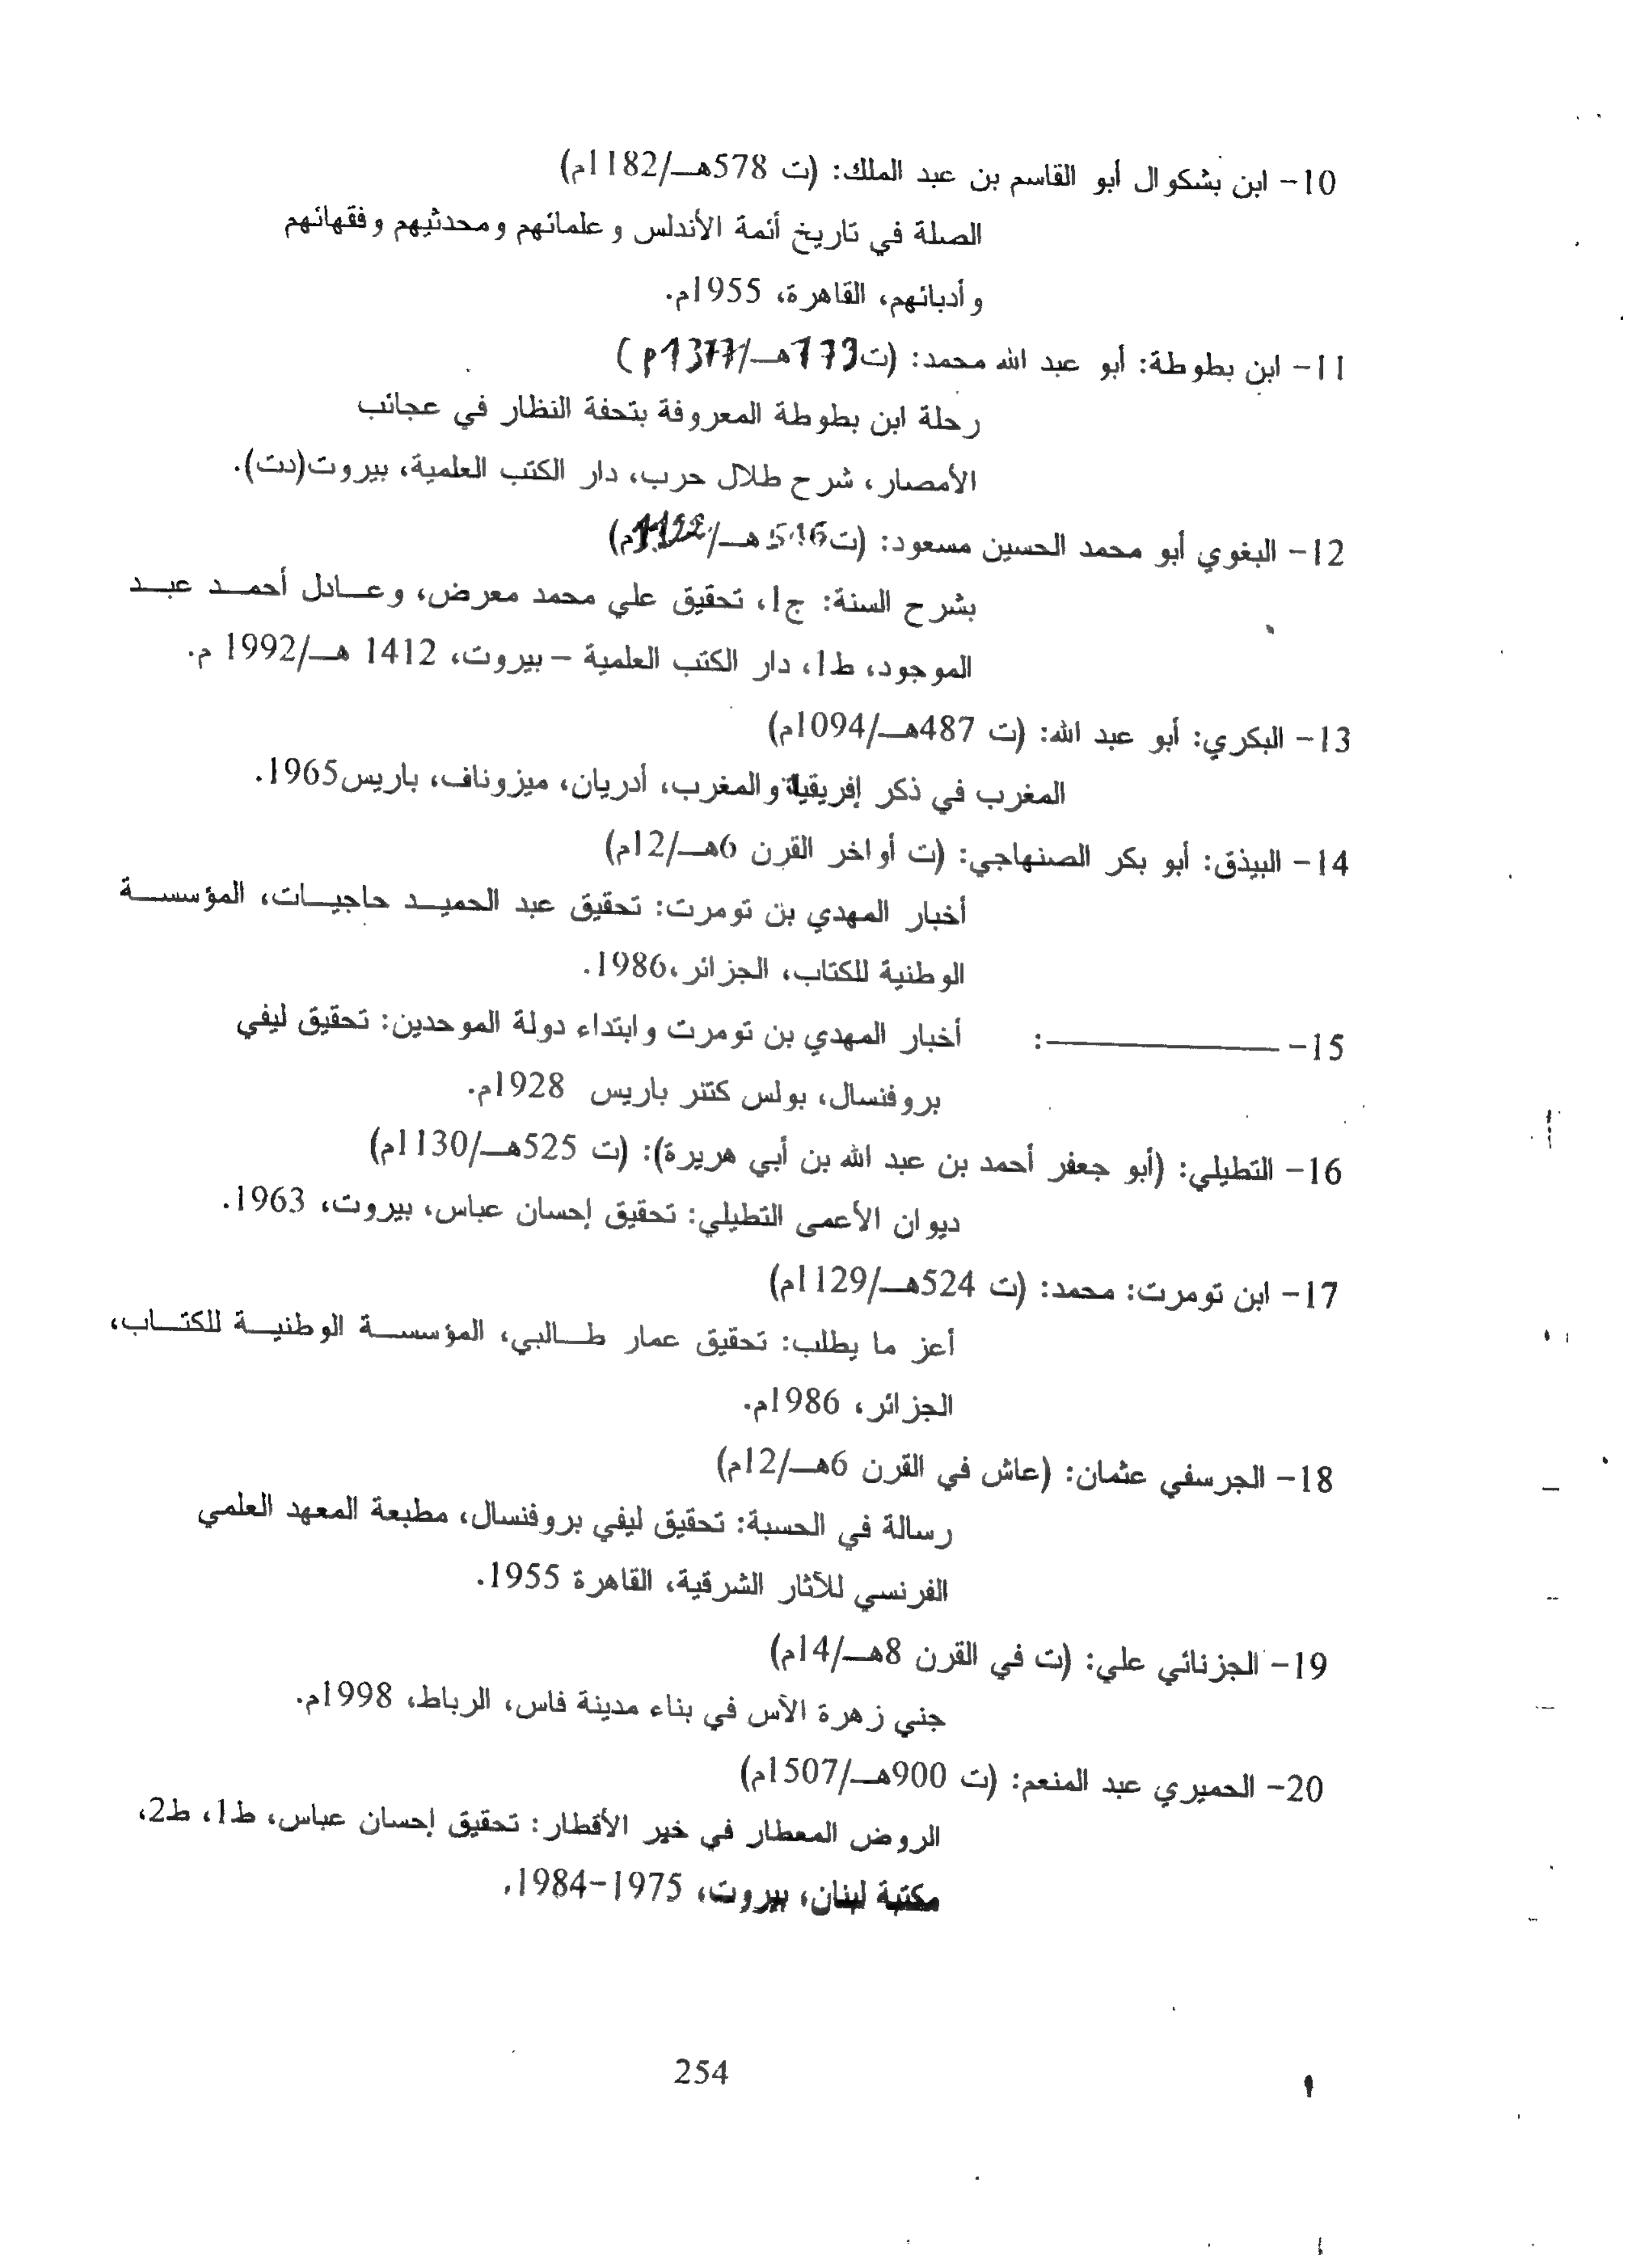 10- ابن بشكوال أبو القاسم بن عبد الملك: (ت 578هـ/1182م)
الصلة في تاريخ أئمة الأندلس وعلمائهم ومحدثيهم وفقهائهم
وأدبائهم، القاهرة، 1955م.
11- ابن بطوطة: أبو عبد الله محمد: (ت779هـ/1377م)
رحلة ابن بطوطة المعروفة بتحفة النظار في عجائب
الأمصار، شرح طلال حرب، دار الكتب العلمية، بيروت(دت).
12- البغوي أبو محمد الحسين مسعود: (ت516هـ/1122م)
بشرح السنة: ج1، تحقيق علي محمد معرض، وعادل أحمد عبد
الموجود، ط1، دار الكتب العلمية – بيروت، 1412 هـ/1992 م.
13- البكري: أبو عبد الله: (ت 487هـ/1094م)
المغرب في ذكر إفريقية والمغرب، أدريان، ميزوناف، باريس1965.
14- البيذق: أبو بكر الصنهاجي: (ت أواخر القرن 6هـ/12م)
أخبار المهدي بن تومرت: تحقيق عبد الحميد حاجيات، المؤسسة
الوطنية للكتاب، الجزائر،1986.
15- ــــــــــــــــ: أخبار المهدي بن تومرت وابتداء دولة الموحدين: تحقيق ليفي
بروفنسال، بولس كتنر باريس 1928م.
16- التطيلي: (أبو جعفر أحمد بن عبد الله بن أبي هريرة): (ت 525هـ/1130م)
ديوان الأعمى التطيلي: تحقيق إحسان عباس، بيروت، 1963.
17- ابن تومرت: محمد: (ت 524هـ/1129م)
أعز ما يطلب: تحقيق عمار طالبي، المؤسسة الوطنية للكتاب،
الجزائر، 1986م.
18- الجرسفي عثمان: (عاش في القرن 6هـ/12م)
رسالة في الحسبة: تحقيق ليفي بروفنسال، مطبعة المعهد العلمي
الفرنسي للآثار الشرقية، القاهرة 1955.
19- الجزنائي علي: (ت في القرن 8هـ/14م)
جني زهرة الآس في بناء مدينة فاس، الرباط، 1998م.
20- الحميري عبد المنعم: (ت 900هـ/1507م)
الروض المعطار في خير الأقطار: تحقيق إحسان عباس، ط1، ط2،
مكتبة لبنان، بيروت، 1975-1984.
254